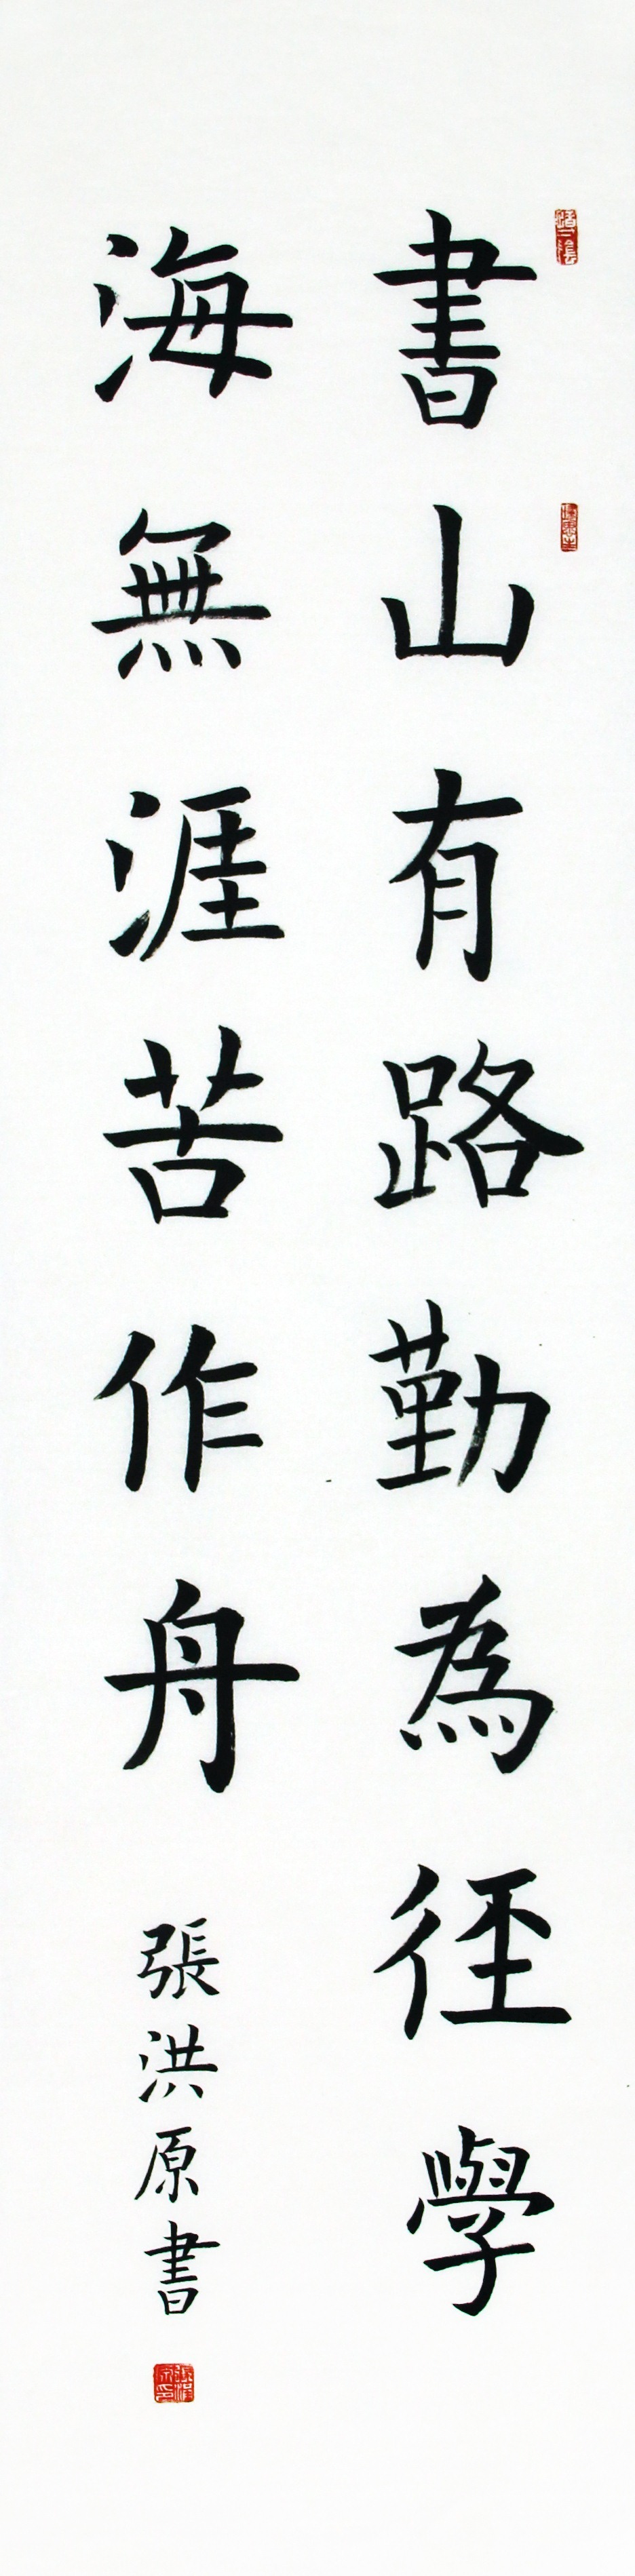 書山有路勤為徑學
海無涯苦作舟
張洪原書